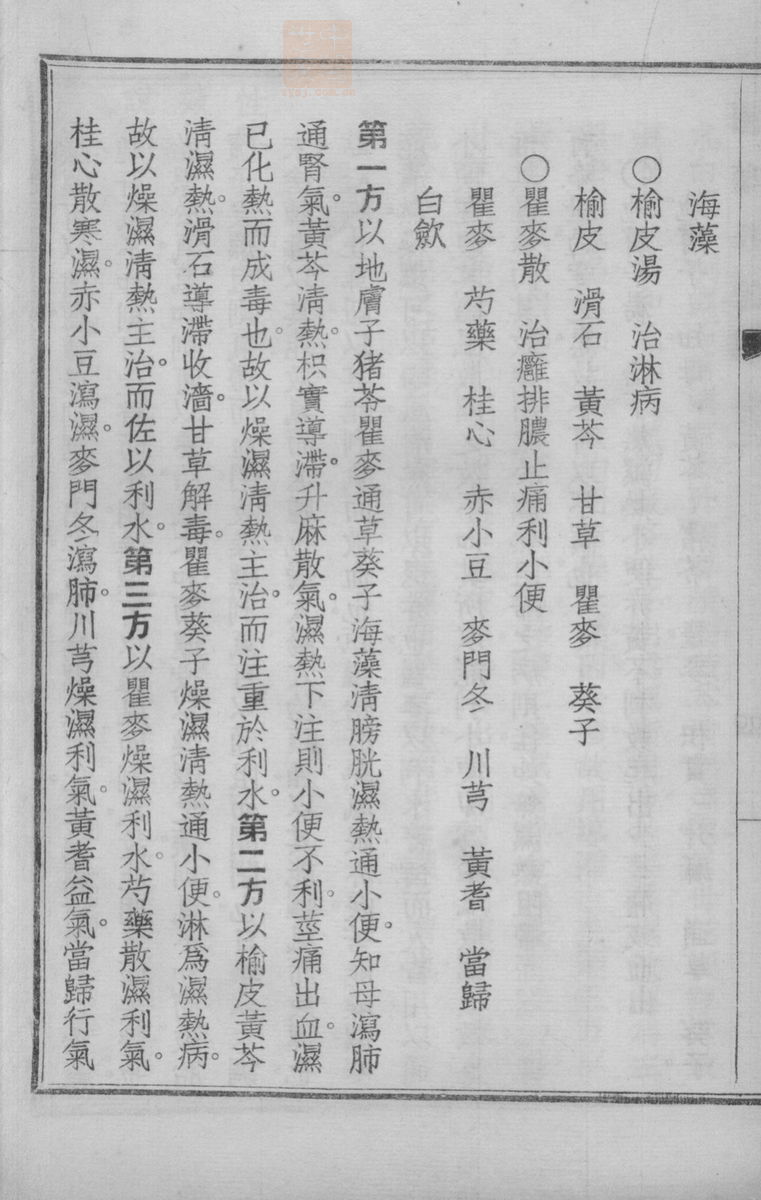 海藻
○榆皮湯　治淋病
榆皮　滑石　黃芩　甘草　瞿麥　葵子
○瞿麥散　治癰排膿止痛利小便
瞿麥　芍藥　桂心　赤小豆　麥門冬　川芎　黃耆　當歸
白歛
第一方以地膚子猪苓瞿麥通草葵子海藻淸膀胱濕熱通小便。知母瀉肺
通腎氣。黃芩淸熱。枳實導滯。升麻散氣。濕熱下注則小便不利。莖痛出血。濕
已化熱而成毒也。故以燥濕淸熱主治。而注重於利水。第二方以榆皮黃芩
淸濕熱。滑石導滯收濇。甘草解毒。瞿麥葵子燥濕淸熱通小便。淋爲濕熱病。
故以燥濕淸熱主治。而佐以利水。第三方以瞿麥燥濕利水。芍藥散濕利氣。
桂心散寒濕。赤小豆瀉濕。麥門冬瀉肺。川芎燥濕利氣。黃耆益氣。當歸行氣